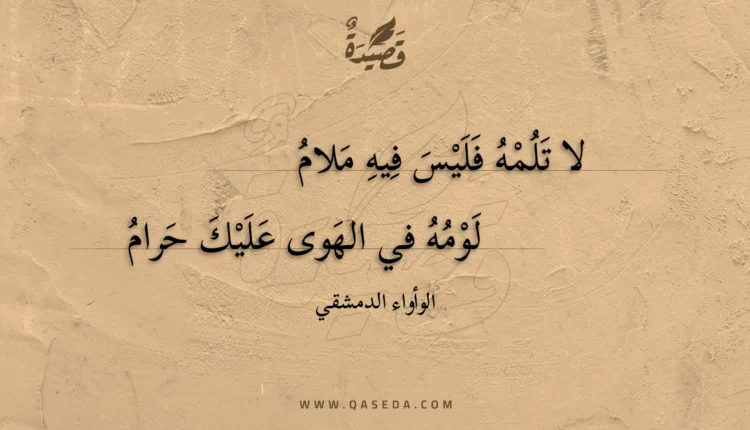 قَصِيْدَةٌ
لا تَلُمْهُ فَلَيْسَ فِيهِ مَلامُ
لَوْمُهُ في الهَوى عَلَيْكَ حَرامُ
الوأواء الدمشقي
WWW.QASEDA.COM